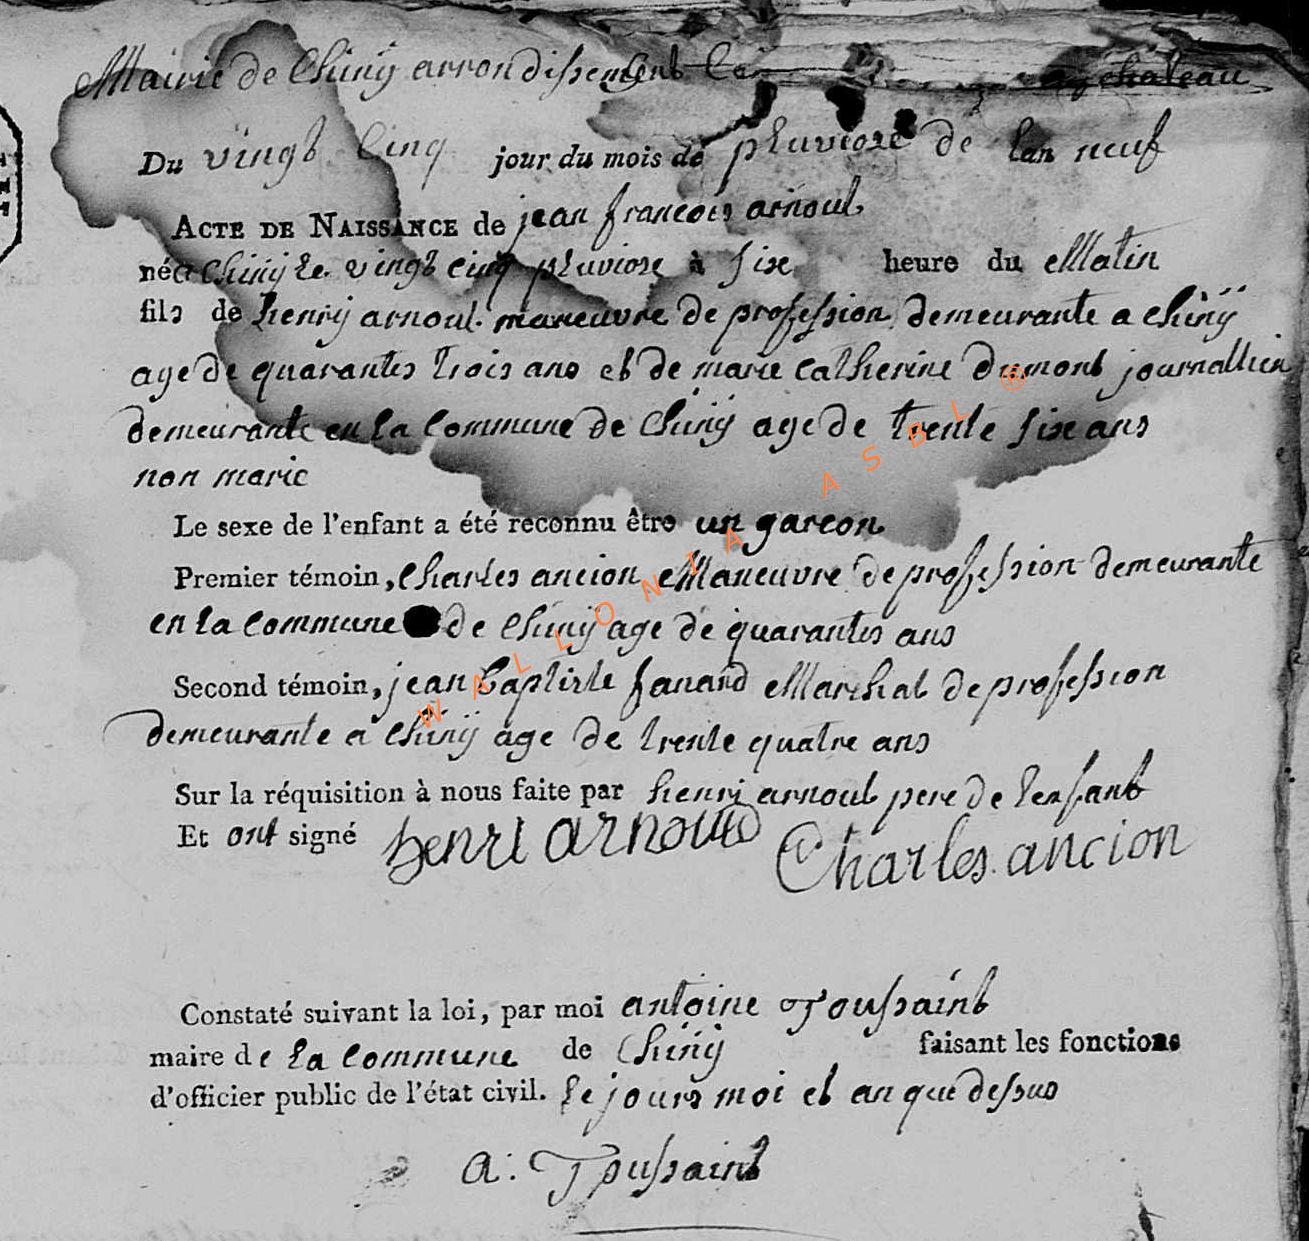 Mairie de Chinÿ arrondissement
chateau
Du vingt Cinq jour du mois de pluviose de lan neuf
ACTE DE NAISSANCE de jean francois arnoul
né a Chinÿ le vingt cinq pluviose à six heure du Matin
fils de henrÿ arnoul maneuvre de profession demeurante a Chinÿ
age de quarantes trois ans et de marie catherine dumont journallier
demeurante en la commune de Chinÿ age de trente six ans
non marie
Le sexe de l'enfant a été reconnu être un garcon
Premier témoin, Charles ancion Maneuvre de profession demeurante
en la commune de Chinÿ age de quarantes ans
Second témoin, jean baptiste fanard Marchal de profession
demeurante a Chinÿ age de trente quatre ans
Sur la réquisition à nous faite par henri arnoul pere de lenfant
Et ont signé henri arnould Charles ancion
Constaté suivant la loi, par moi antoine Toussaint
maire de la commune de Chinÿ faisant les fonctions
d'officier public de l'état civil. le jours moi et an que dessus
a. Toussaint
WALLONIA ASBL ®